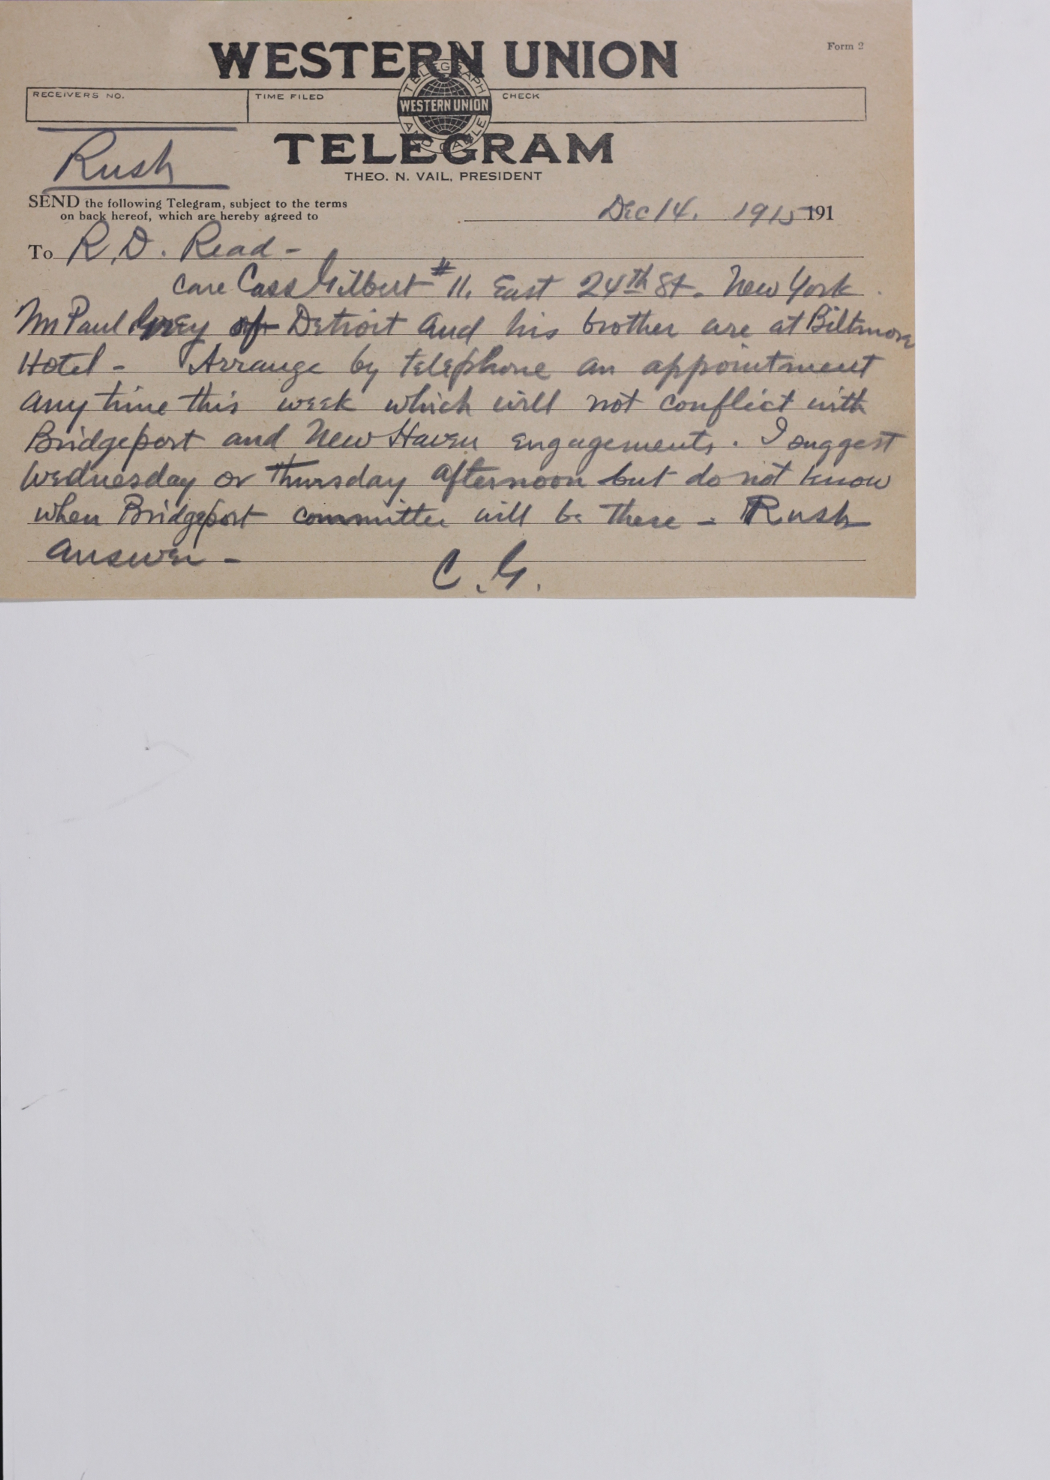 Form 2
WESTERN UNION
RECEIVERS NO.
TIME FILED
CHECK
TELEGRAPH AND CABLE
WESTERN UNION
TELEGRAM
THEO. N. VAIL, PRESIDENT
Rush
SEND the following Telegram, subject to the terms
on back hereof, which are hereby agreed to
Dec 14. 1915 191
To R. D. Read -
care Cass Gilbert #11. East 24th St. New York
Mr Paul Grey of Detroit and his brother are at Biltmore
Hotel - Arrange by telephone an appointment
any time this week which will not conflict with
Bridgeport and New Haven engagements. I suggest
Wednesday or Thursday afternoon but do not know
when Bridgeport committee will be there - Rush
answer -
C. G.